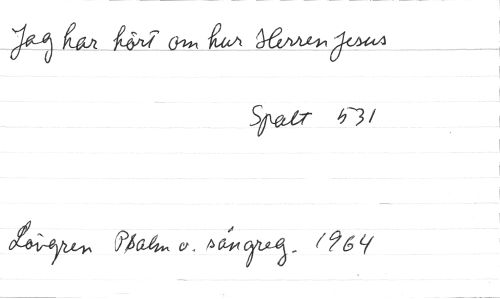 Jag har hört om hur Herren Jesus
Spalt 531
Lövgren Psalm o. sångreg. 1964